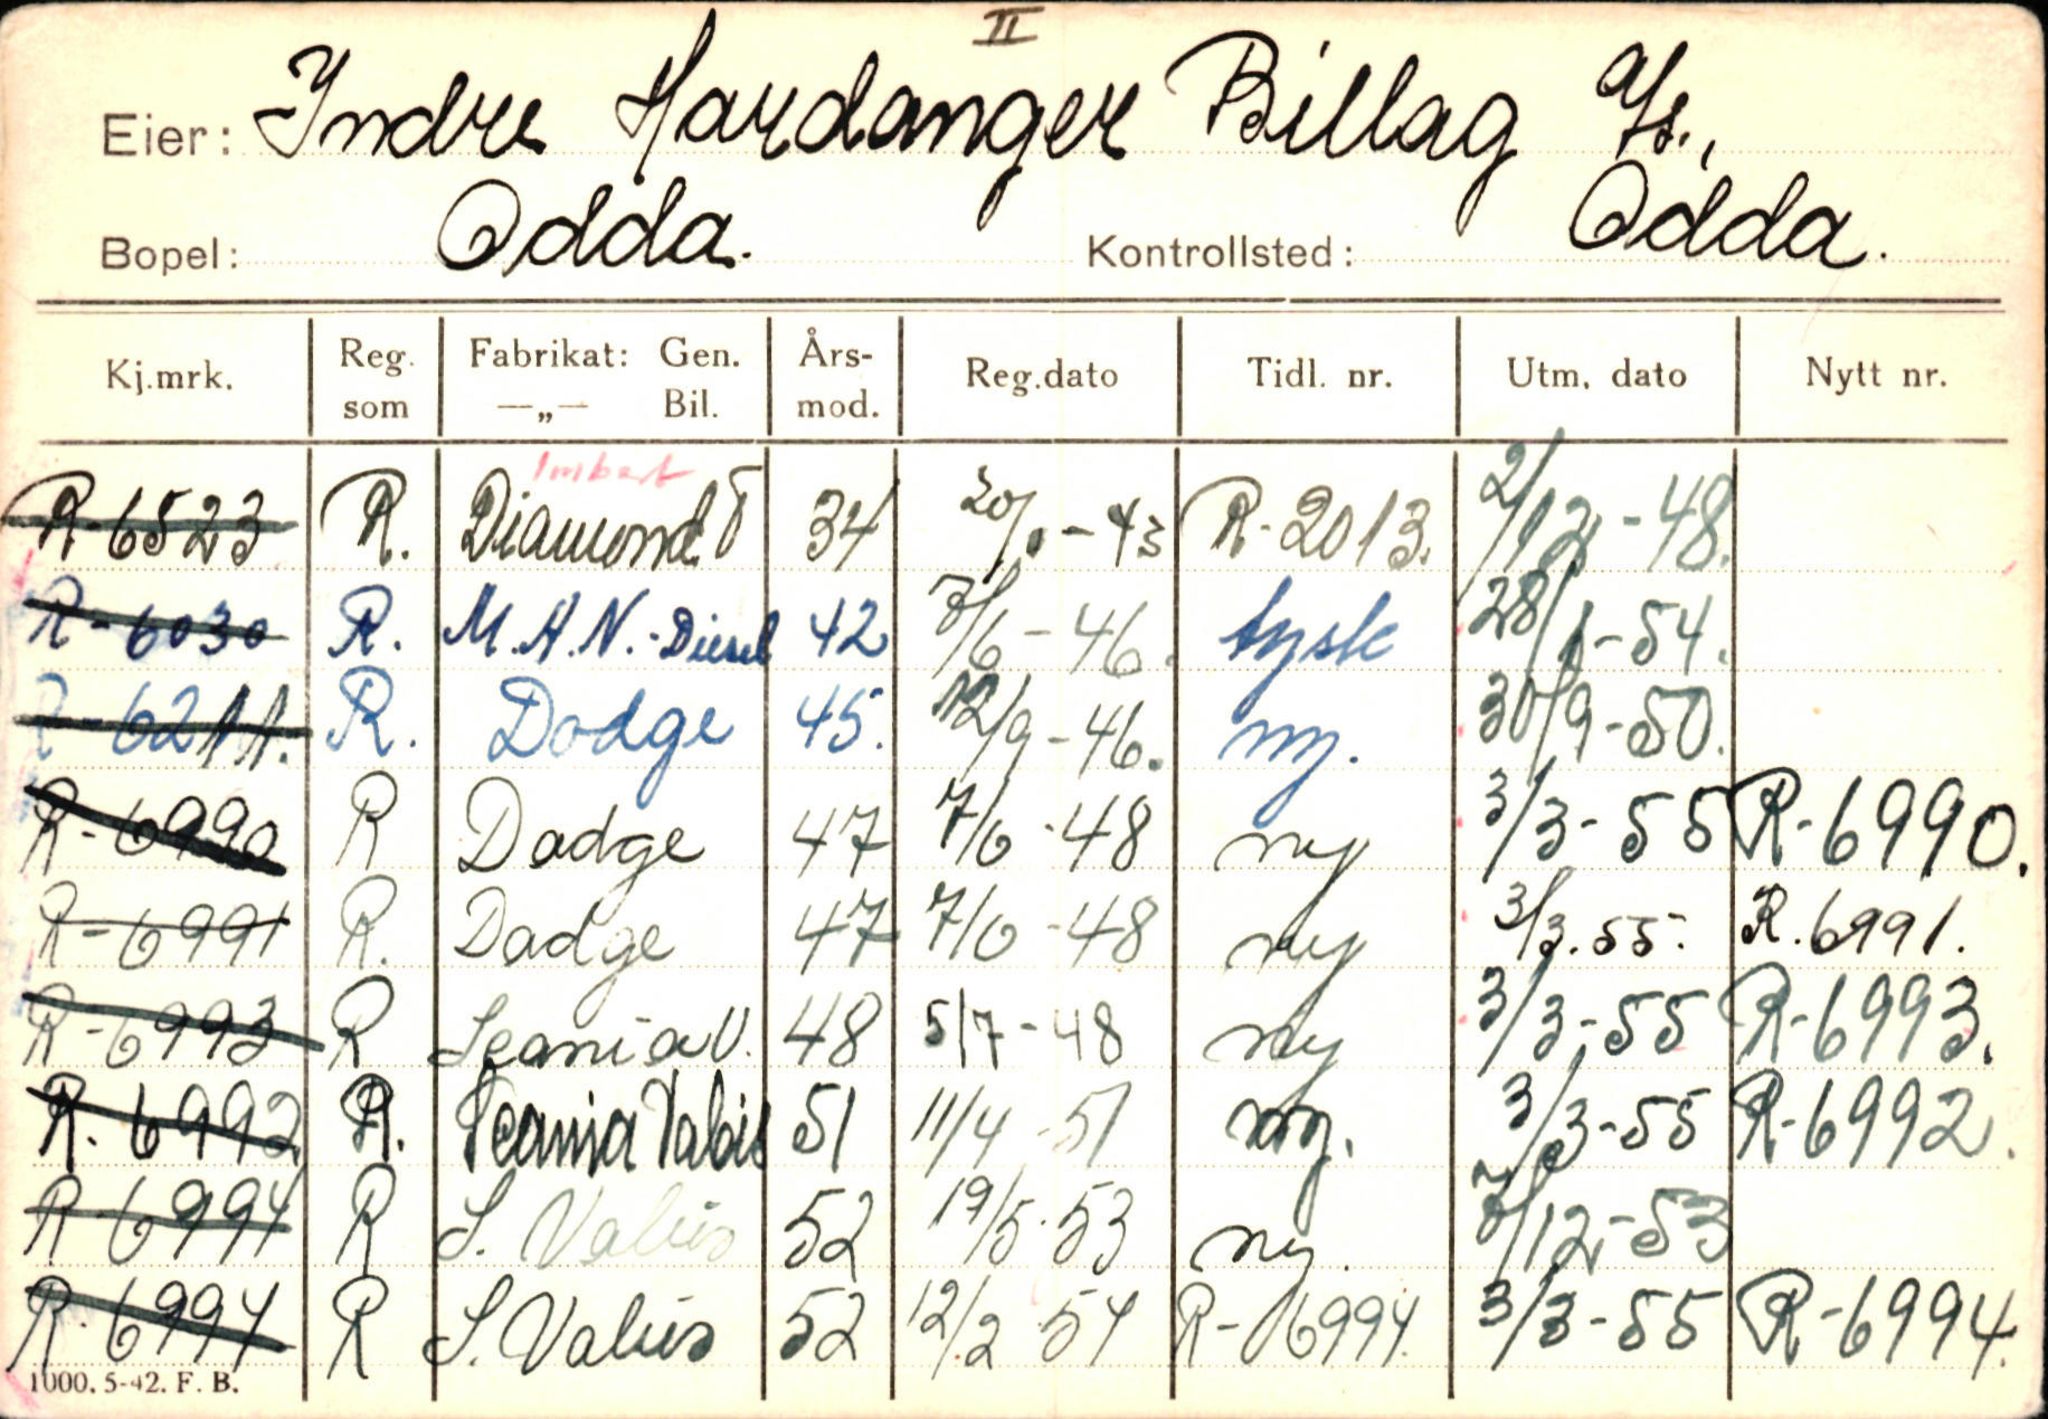 II
Eier: Indre Hardanger Billag A/s.,
Bopel: Odda. Kontrollsted: Odda.
Kj.mrk. Reg. som Fabrikat: Gen. —„— Bil. Års-mod. Reg.dato Tidl. nr. Utm. dato Nytt nr.
Imbert
R-6523 R. Diamond T 34 R-2013. 2/12-48.
R-6030 R. M.A.N.-Diesel 42 3/6-46. tysk 28/1-54.
R-6211. R. Dodge 45. 12/9-46. ny. 30/9-50.
R-6990 R Dodge 47 7/6-48 ny 3/3-55 R-6990.
R-6991 R. Dodge 47 7/6-48 ny 3/3.55. R.6991.
R-6993 R Scania V. 48 5/7-48 ny 3/3-55 R-6993.
R.6992 R. Scania Vabis 51 11/4-51 ny. 3/3-55 R-6992.
R-6994 R S. Vabis 52 19/5-53 ny. 12-53
R-6994 R S. Vabis 52 12/2 54 R-6994. 3/3-55 R-6994.
1000. 5-42. F. B.